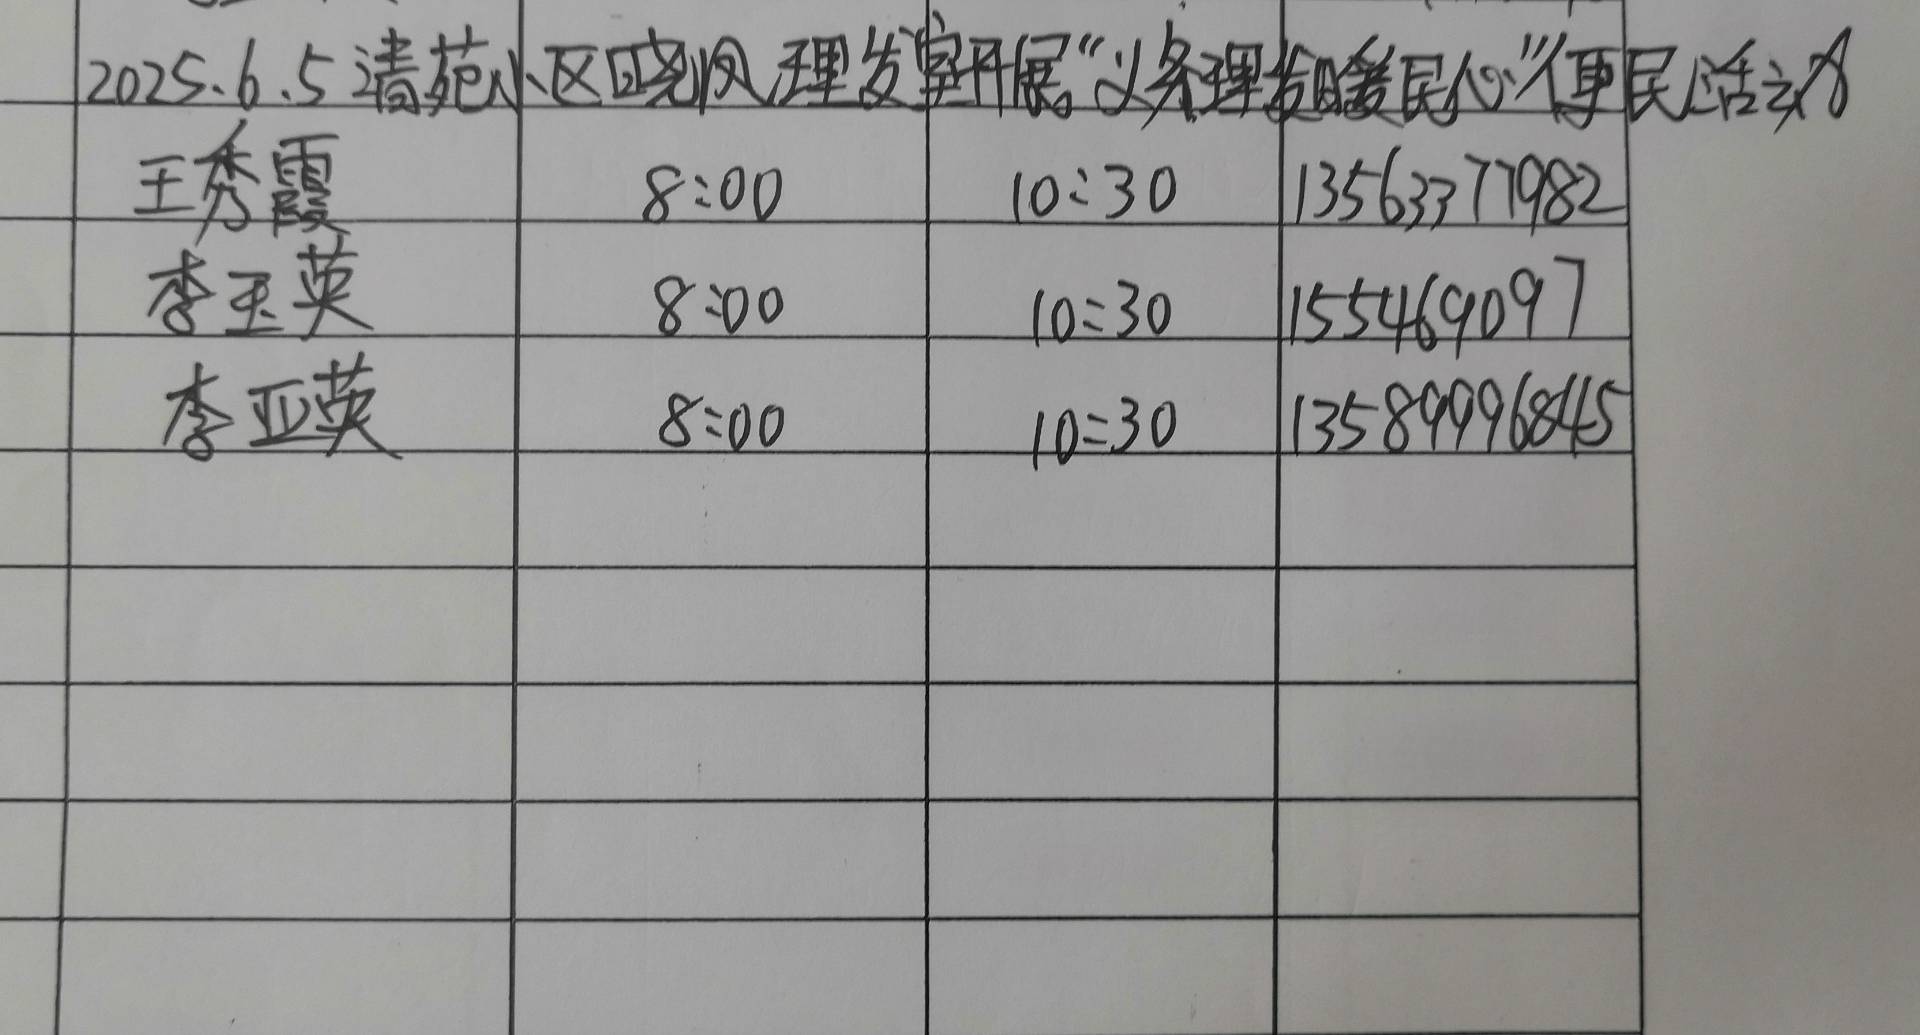 2025.6.5清苑小区晓风理发室开展“义务理发暖民心”便民活动
王秀霞 8:00 10:30 13563377982
李玉英 8:00 10:30 155469097
李亚英 8:00 10:30 13589996845